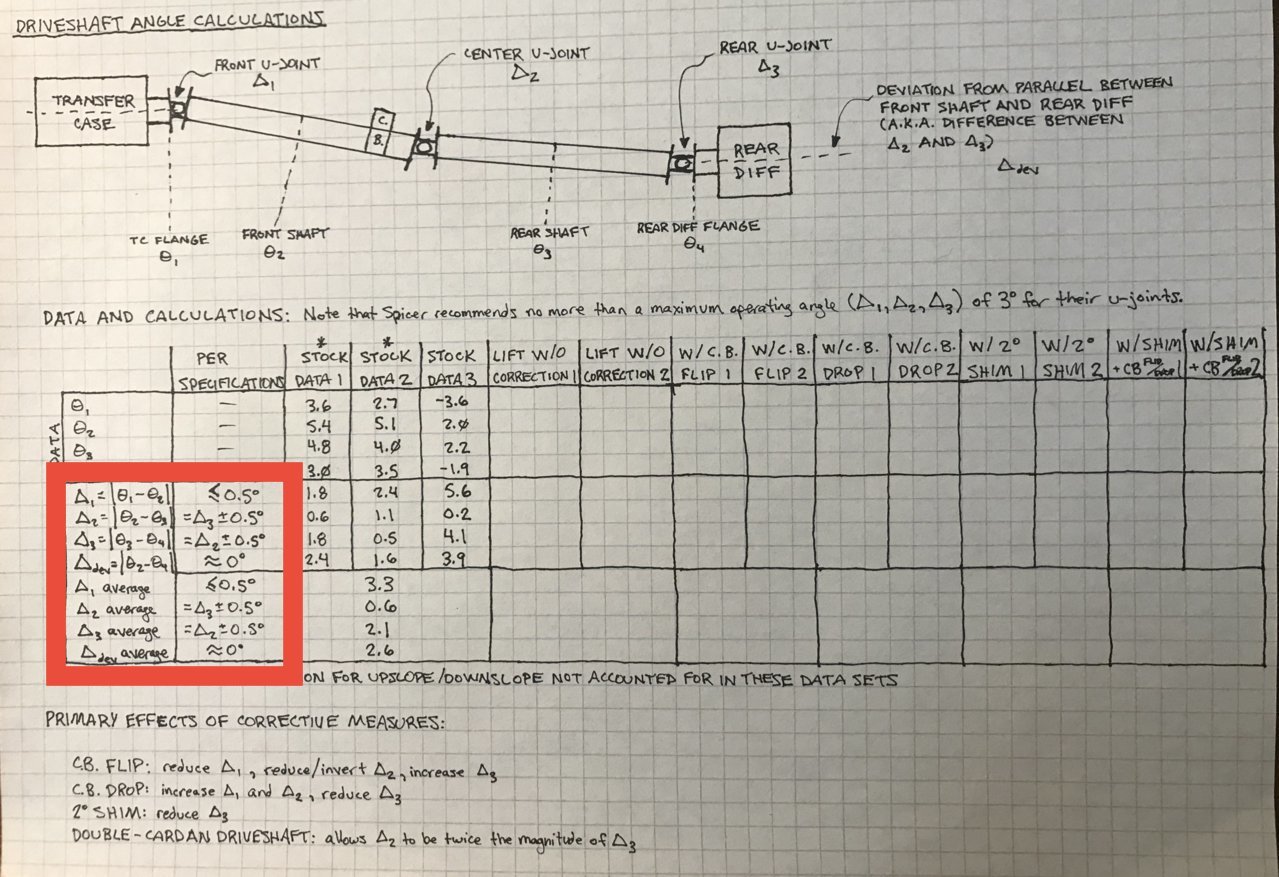 DRIVESHAFT ANGLE CALCULATIONS
TRANSFER
CASE
FRONT U-JOINT
Δ₁
C.
B.
CENTER U-JOINT
Δ₂
REAR U-JOINT
Δ₃
REAR
DIFF
DEVIATION FROM PARALLEL BETWEEN
FRONT SHAFT AND REAR DIFF
(A.K.A. DIFFERENCE BETWEEN
Δ₂ AND Δ₃)
Δdev
TC FLANGE
θ₁
FRONT SHAFT
θ₂
REAR SHAFT
θ₃
REAR DIFF FLANGE
θ₄
DATA AND CALCULATIONS: Note that Spicer recommends no more than a maximum operating angle (Δ₁, Δ₂, Δ₃) of 3° for their u-joints.
PER SPECIFICATIONS
* STOCK DATA 1
* STOCK DATA 2
STOCK DATA 3
LIFT W/O CORRECTION 1
LIFT W/O CORRECTION 2
W/C.B. FLIP 1
W/C.B. FLIP 2
W/C.B. DROP 1
W/C.B. DROP 2
W/ 2° SHIM 1
W/ 2° SHIM 2
W/SHIM + CB FLIP/DROP 1
W/SHIM + CB FLIP/DROP 2
DATA
θ₁ — 3.6 2.7 -3.6
θ₂ — 5.4 5.1 2.0
θ₃ — 4.8 4.0 2.2
3.0 3.5 -1.9
Δ₁=|θ₁-θ₂| ≤0.5° 1.8 2.4 5.6
Δ₂=|θ₂-θ₃| =Δ₃±0.5° 0.6 1.1 0.2
Δ₃=|θ₃-θ₄| =Δ₂±0.5° 1.8 0.5 4.1
Δdev=|θ₂-θ₄| ≈0° 2.4 1.6 3.9
Δ₁ average ≤0.5° 3.3
Δ₂ average =Δ₃±0.5° 0.6
Δ₃ average =Δ₂±0.5° 2.1
Δdev average ≈0° 2.6
ON FOR UPSLOPE/DOWNSLOPE NOT ACCOUNTED FOR IN THESE DATA SETS
PRIMARY EFFECTS OF CORRECTIVE MEASURES:
C.B. FLIP: reduce Δ₁, reduce/invert Δ₂, increase Δ₃
C.B. DROP: increase Δ₁ and Δ₂, reduce Δ₃
2° SHIM: reduce Δ₃
DOUBLE-CARDAN DRIVESHAFT: allows Δ₂ to be twice the magnitude of Δ₃